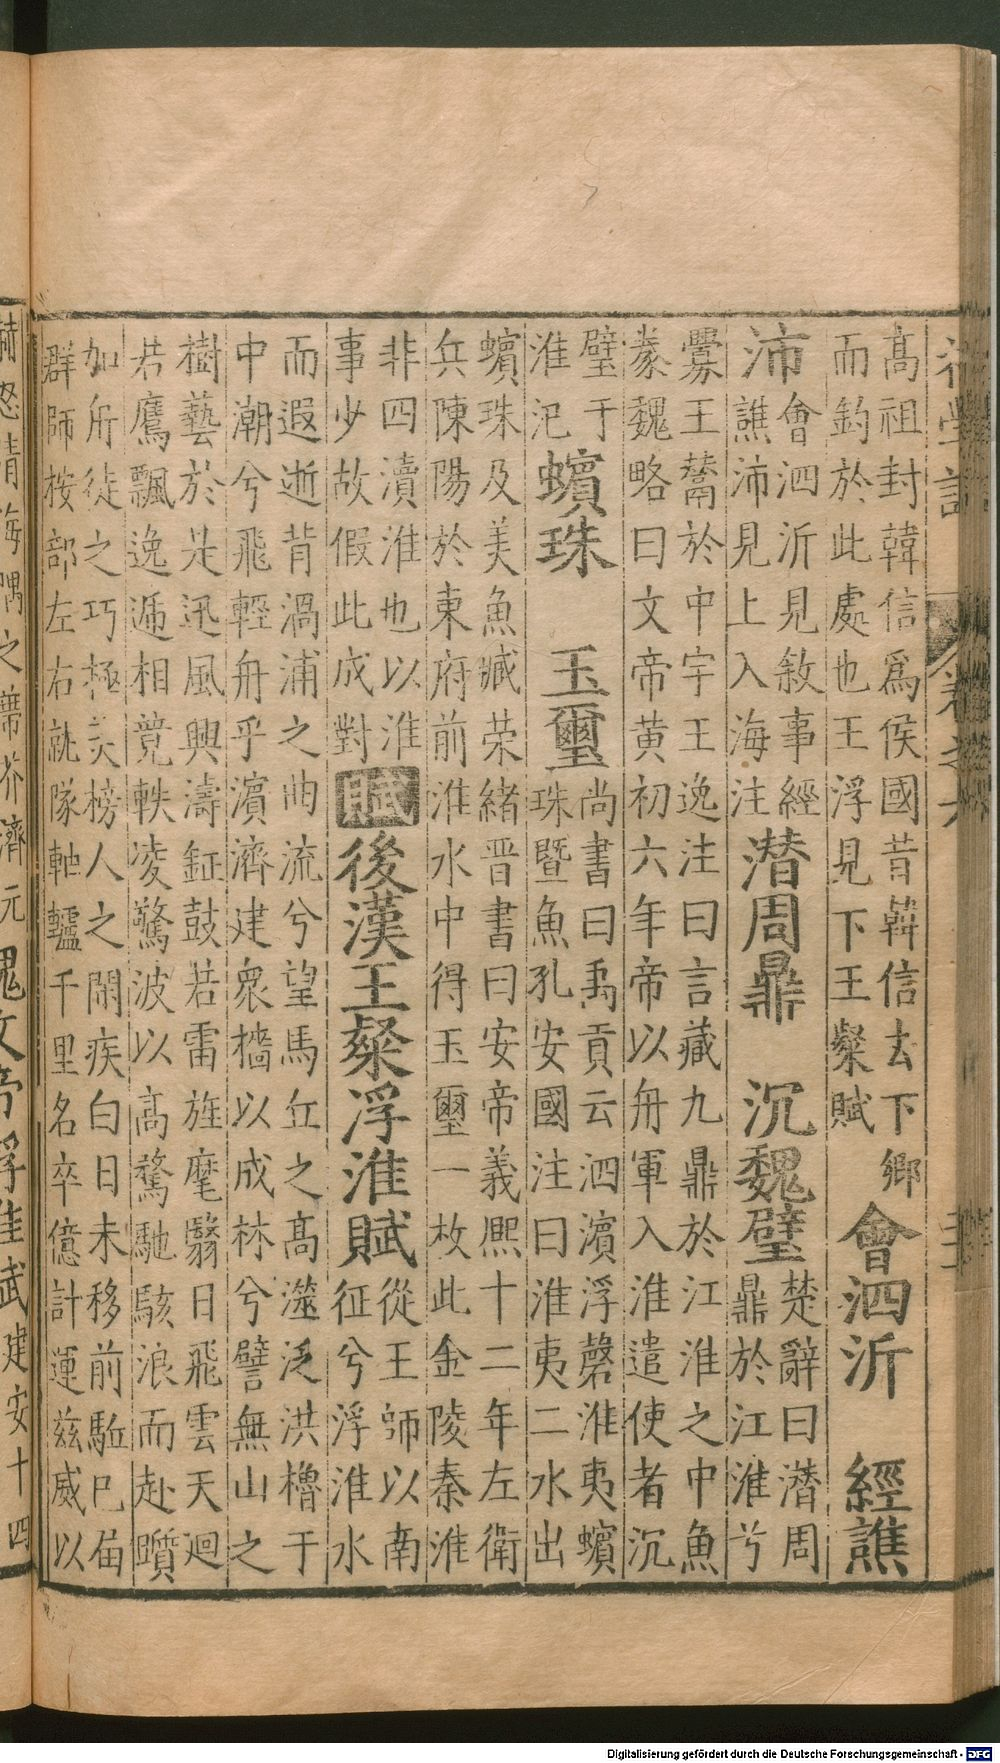 髙祖封韓信爲侯國昔韓信去下鄉
而釣於此處也王浮見下王粲賦
會泗沂 經譙
沛
會泗沂見敘事經
譙沛見上入海注
潜周鼎 沉魏璧
楚辭曰潜周
鼎於江淮兮
爨王鬵於中宇王逸注曰言藏九鼎於江淮之中魚
豢魏略曰文帝黄初六年帝以舟軍入淮遣使者沉
璧于
淮汜
蠙珠 玉璽
尚書曰禹貢云泗濵浮磬淮夷蠙
珠曁魚孔安國注曰淮夷二水出
蠙珠及美魚臧荣緒晋書曰安帝義熈十二年左衛
兵陳陽於東府前淮水中得玉璽一枚此金陵秦淮
非四瀆淮也以淮
事少故假此成對
賦
後漢王粲浮淮賦
從王師以南
征兮浮淮水
而遐逝背渦浦之曲流兮望馬丘之髙澨泛洪櫓于
中潮兮飛輕舟乎濵濟建衆檣以成林兮譬無山之
樹藝於是迅風興濤鉦鼓若雷旌麾翳日飛雲天廻
若鷹飄逸遞相競軼凌驚波以髙驁馳駭浪而赴質
加斻徒之巧極美榜人之閑疾白日未移前駈已届
群師按部左右就隊軸轤千里名卒億計運玆威以
赫怒清海隅之蔕芥濟元
魏文帝浮淮賦
建安十四
Digitalisierung gefördert durch die Deutsche Forschungsgemeinschaft - DFG